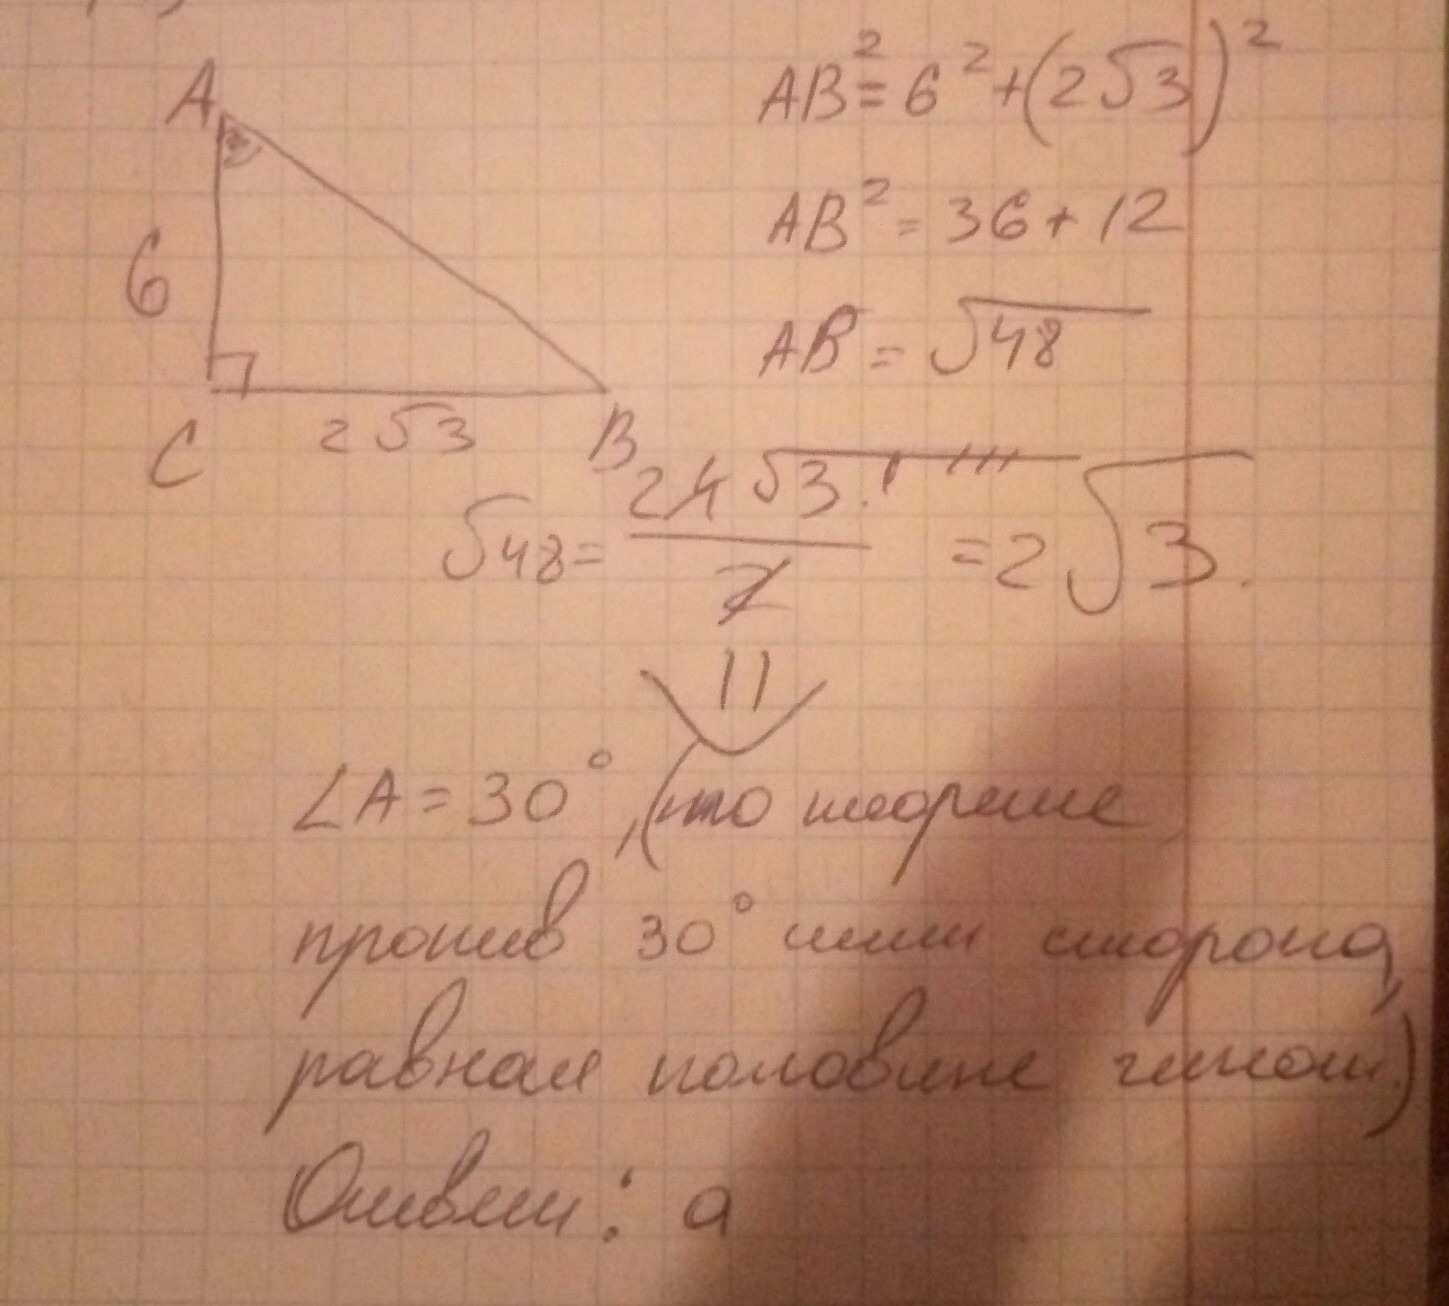 A
6
C
2√3
B
AB² = 6² + (2√3)²
AB² = 36 + 12
AB = √48
√48 = 24√3 / 2 = 2√3.
∠A = 30°, (по теореме
против 30° леж сторона,
равная половине гипот.)
Ответ: а